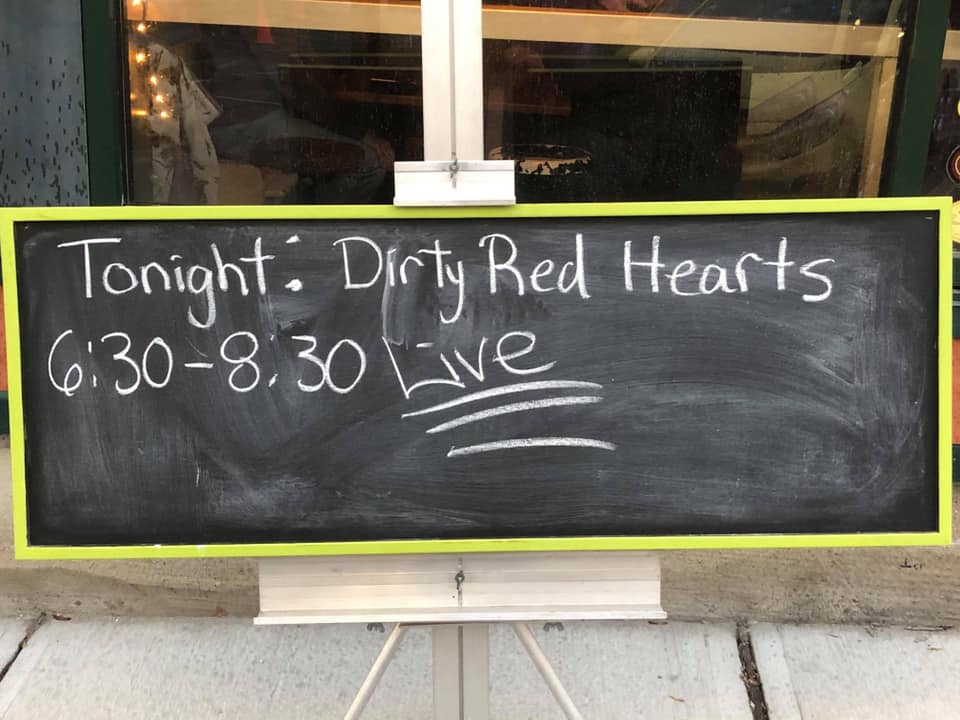 Tonight: Dirty Red Hearts
6:30-8:30 Live